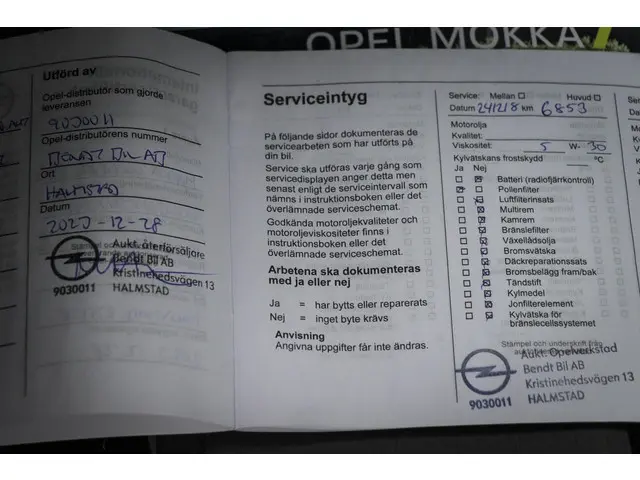 OPEL MOKKA
Utförd av
Opel-distributör som gjorde
leveransen
9030011
Opel-distributörens nummer
BENDT BIL AB
Ort
HALMSTAD
Datum
2023-12-28
Stämpel och
Aukt. återförsäljare
Bendt Bil AB
Kristinehedsvägen 13
9030011 HALMSTAD
Serviceintyg
På följande sidor dokumenteras de
servicearbeten som har utförts på
din bil.
Service ska utföras varje gång som
servicedisplayen anger detta men
senast enligt de serviceintervall som
nämns i instruktionsboken eller det
överlämnade serviceschemat.
Godkända motoroljekvaliteter och
motoroljeviskositeter finns i
instruktionsboken eller det
överlämnade serviceschemat.
Arbetena ska dokumenteras
med ja eller nej
Ja = har bytts eller reparerats
Nej = inget byte krävs
Anvisning
Angivna uppgifter får inte ändras.
Service: Mellan Huvud
Datum 241218 km 6853
Motorolja
Kvalitet:
Viskositet: 5 W- 30
Kylvätskans frostskydd °C
Ja Nej
Batteri (radiofjärrkontroll)
Pollenfilter
Luftfilterinsats
Multirem
Kamrem
Bränslefilter
Växellådsolja
Bromsvätska
Däckreparationssats
Bromsbelägg fram/bak
Tändstift
Kylmedel
Jonfilterelement
Kylvätska för
bränslecellssystemet
Stämpel och underskrift från
Aukt. Opelverkstad
Bendt Bil AB
Kristinehedsvägen 13
9030011 HALMSTAD